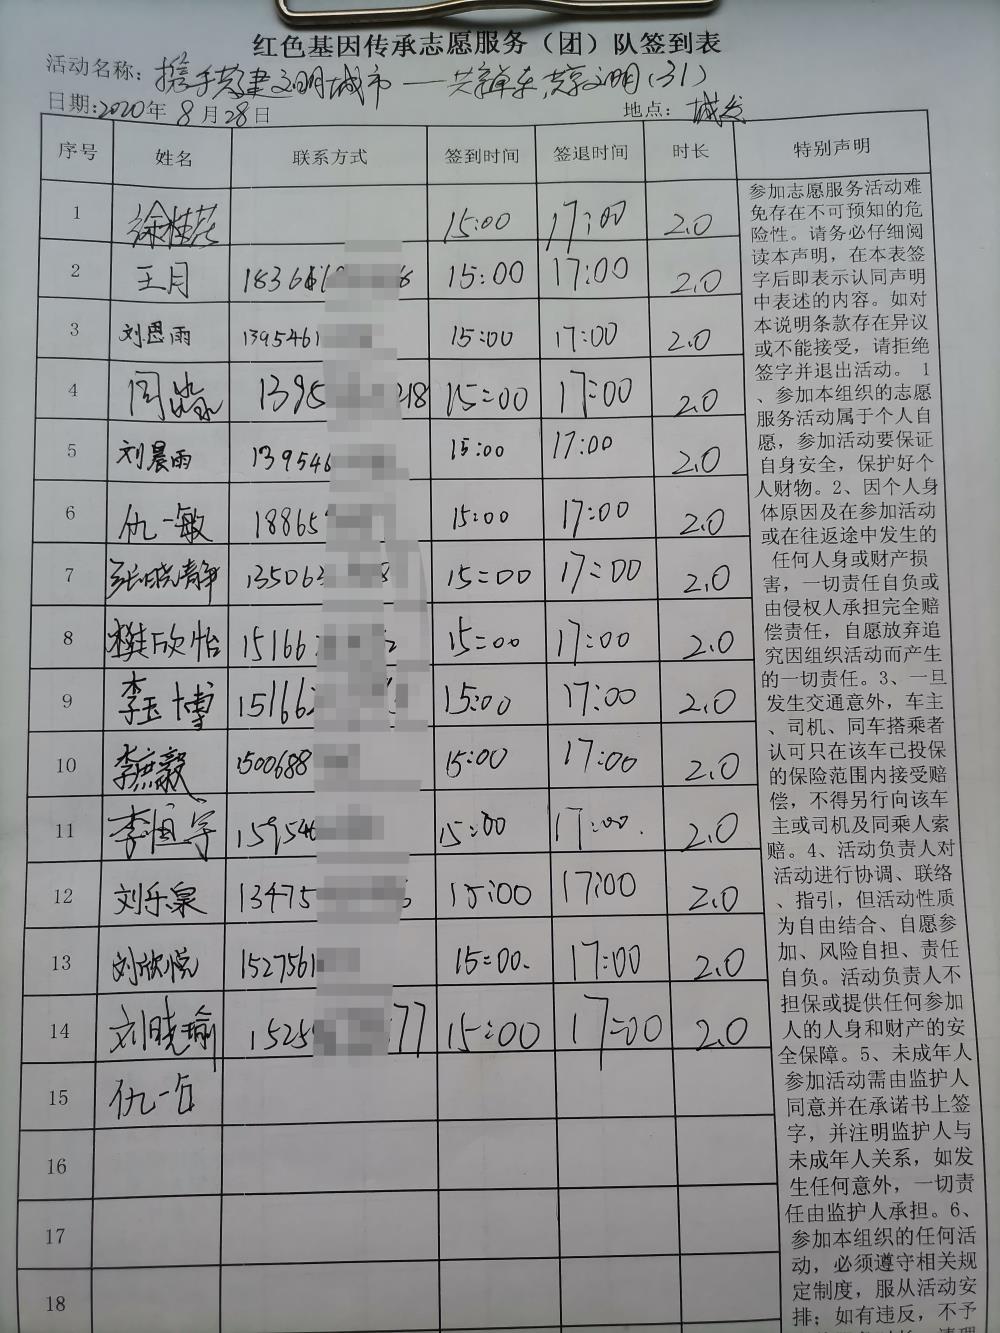 红色基因传承志愿服务（团）队签到表
活动名称：携手共建文明城市——共享单车，共享文明（31）
日期：2020年8月28日 地点：
序号 姓名 联系方式 签到时间 签退时间 时长 特别声明
1 徐桂花 15:00 17:00 2.0
2 王月 15:00 17:00 2.0
3 刘恩雨 1395461 15:00 17:00 2.0
4 1395 218 15:00 17:00 2.0
5 刘晨雨 139546 15:00 17:00 2.0
6 仇一敏 18865 15:00 17:00 2.0
7 张晓静 13506 15:00 17:00 2.0
8 樊欣怡 15166 15:00 17:00 2.0
9 李玉博 15166 15:00 17:00 2.0
10 1500688 15:00 17:00 2.0
11 李恒宇 159546 15:00 17:00 2.0
12 刘乐泉 13475 15:00 17:00 2.0
13 刘欣悦 1527561 15:00 17:00 2.0
14 刘晓瑜 1525 77 15:00 17:00 2.0
15 仇一
16
17
18
参加志愿服务活动难
免存在不可预知的危
险性。请务必仔细阅
读本声明，在本表签
字后即表示认同声明
中表述的内容。如对
本说明条款存在异议
或不能接受，请拒绝
签字并退出活动。 1
、参加本组织的志愿
服务活动属于个人自
愿，参加活动要保证
自身安全，保护好个
人财物。2、因个人身
体原因及在参加活动
或在往返途中发生的
任何人身或财产损
害，一切责任自负或
由侵权人承担完全赔
偿责任，自愿放弃追
究因组织活动而产生
的一切责任。3、一旦
发生交通意外，车主
、司机、同车搭乘者
认可只在该车已投保
的保险范围内接受赔
偿，不得另行向该车
主或司机及同乘人索
赔。4、活动负责人对
活动进行协调、联络
、指引，但活动性质
为自由结合、自愿参
加、风险自担、责任
自负。活动负责人不
担保或提供任何参加
人的人身和财产的安
全保障。5、未成年人
参加活动需由监护人
同意并在承诺书上签
字，并注明监护人与
未成年人关系，如发
生任何意外，一切责
任由监护人承担。6、
参加本组织的任何活
动，必须遵守相关规
定制度，服从活动安
排；如有违反，不予